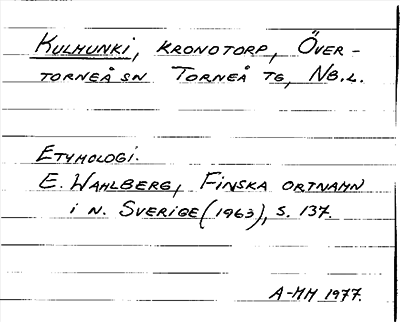 Kulhunki, kronotorp, Över-
torneå sn Torneå tg, Nb.l.
Etymologi.
E. Wahlberg, Finska ortnamn
i n. Sverige (1963), s. 137.
A-MH 1977.